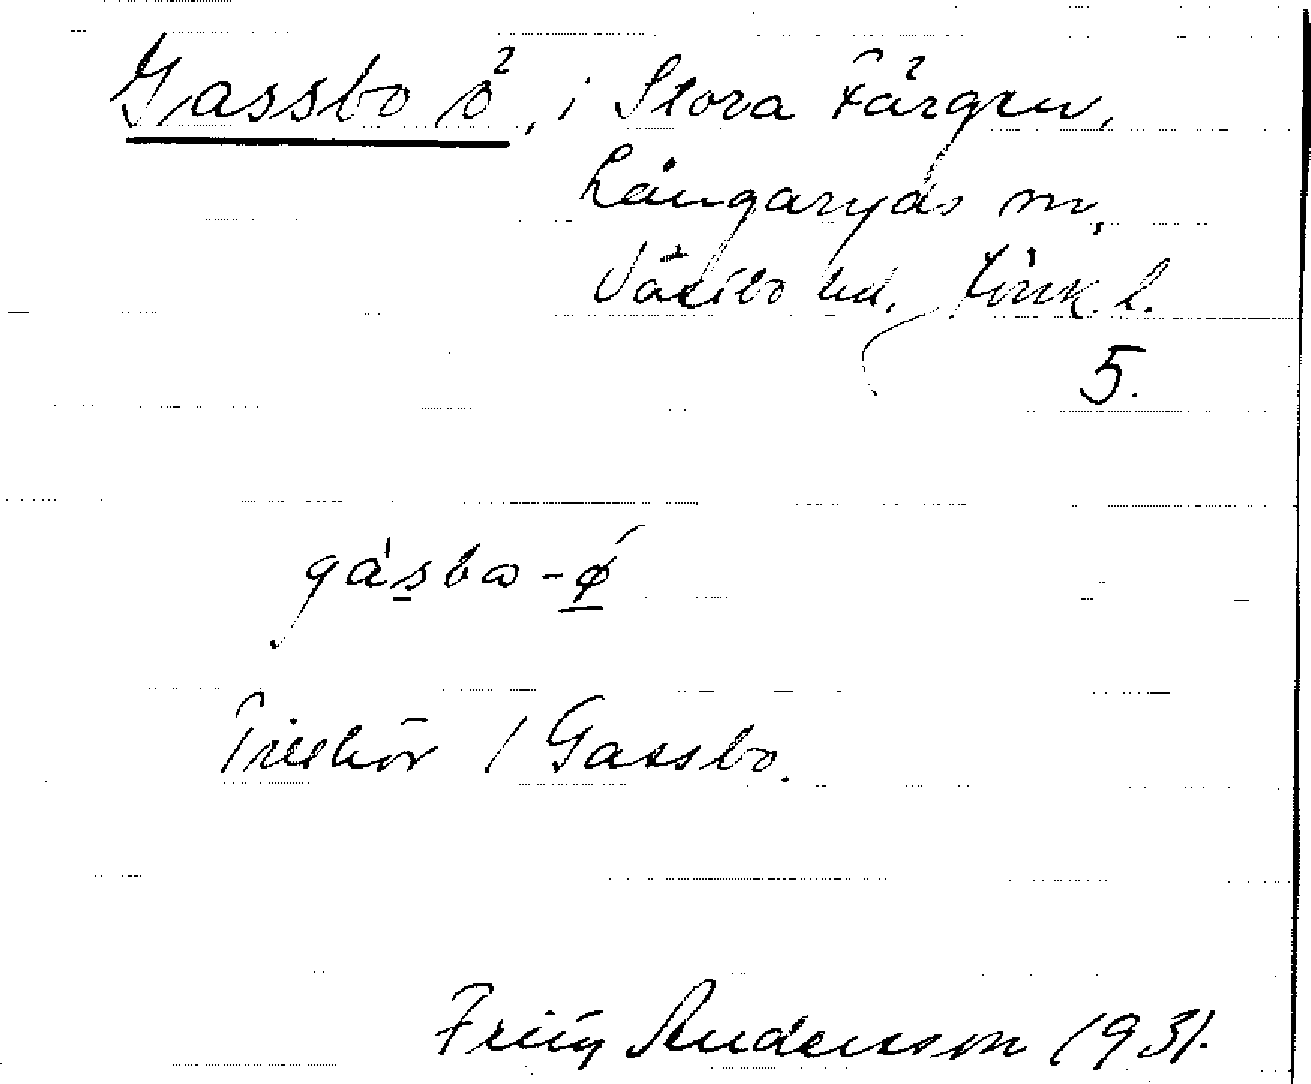 Gassbo ö, i Stora Färgen,
Långaryds sn,
Västbo hd, Jönk. l.
5.
gásbo-ø
Tillhör 1 Gassbo.
Fritz Andersson 1931.